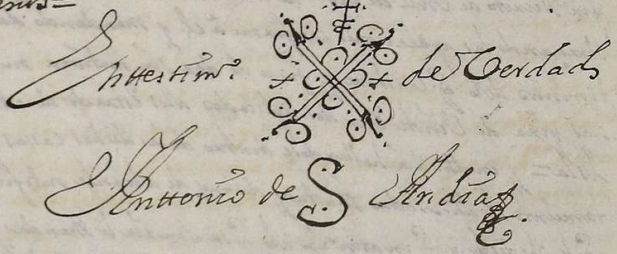 En testim.º de Verdad
Anttonio de S Andia